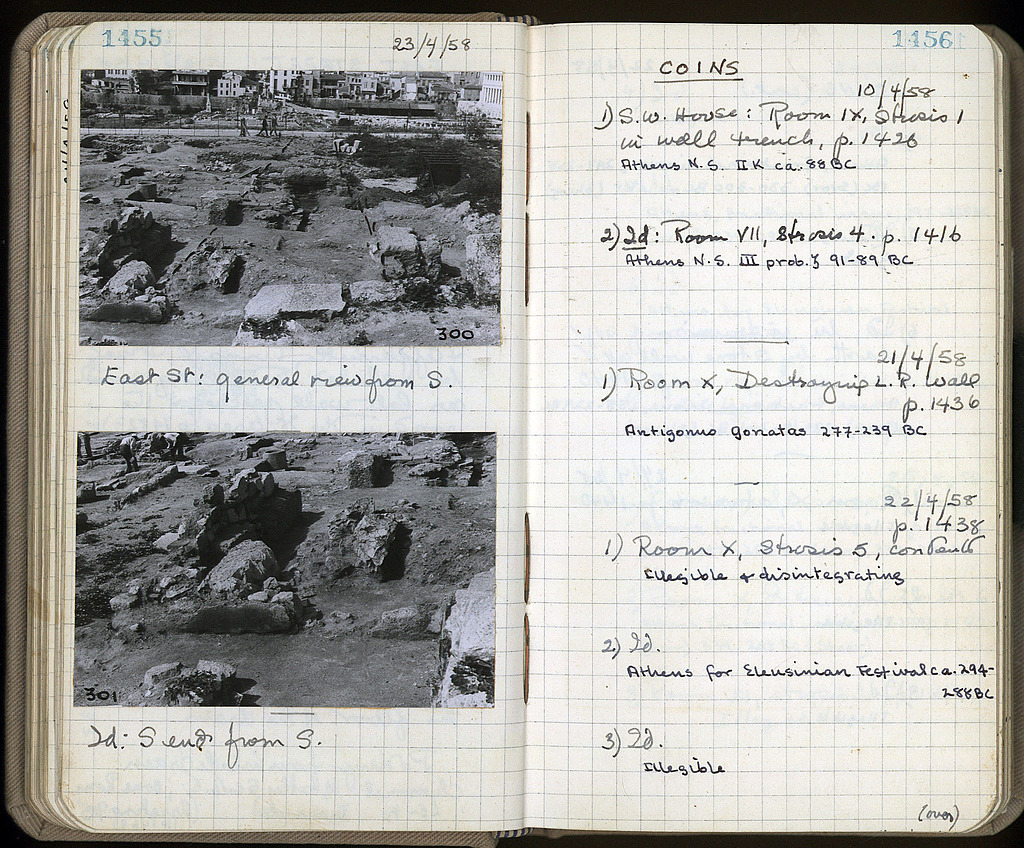 1455
23/4/58
300
East St: general view from S.
301
Id: S end from S.
1456
COINS
10/4/58
1) S.W. House: Room IX, Strosis 1
in wall trench, p. 1426
Athens N.S. II K ca. 88 BC
2) Id: Room VII, Strosis 4. p. 1416
Athens N.S. III prob. 91-89 BC
21/4/58
1) Room X, Destroying L.R. wall
p. 1436
Antigonus Gonatas 277-239 BC
22/4/58
p. 1438
1) Room X, Strosis 5, contents
Illegible & disintegrating
2) Id.
Athens for Eleusinian Festival ca. 294-
288 BC
3) Id.
Illegible
(over)